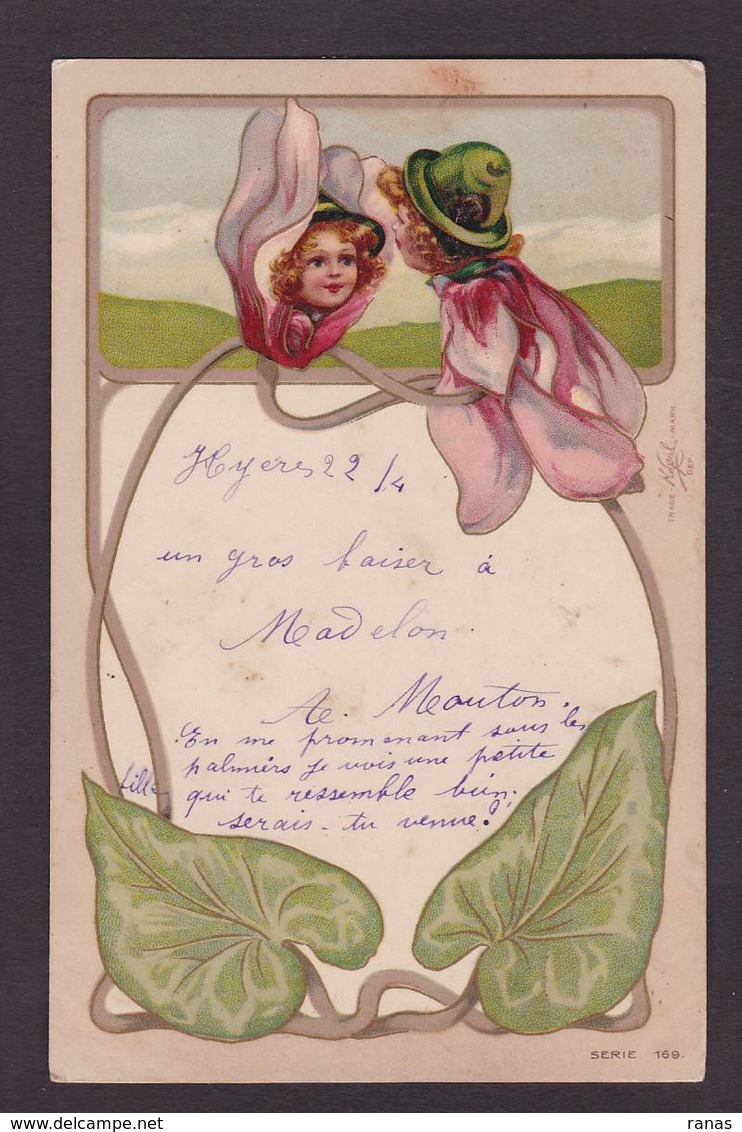 Hyères 22/4
un gros baiser à
Madelon.
A. Mouton.
En me promenant sous les
palmiers je vois une petite
fille qui te ressemble bien;
serais-tu venue?
TRADE MARK
DEP.
SERIE 169.
ranas
delcampe.net